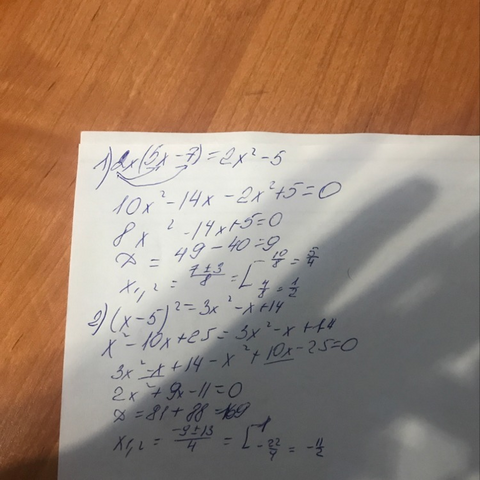 1) 2x(5x-7)=2x²-5
10x²-14x-2x²+5=0
8x²-14x+5=0
D = 49-40=9
x₁,₂ = (7±3)/8 = [ 10/8 = 5/4
4/8 = 1/2
2) (x-5)²=3x²-x+14
x²-10x+25=3x²-x+14
3x²-x+14-x²+10x-25=0
2x²+9x-11=0
D=81+88=169
x₁,₂ = (-9±13)/4 = [ 1
-22/4 = -11/2